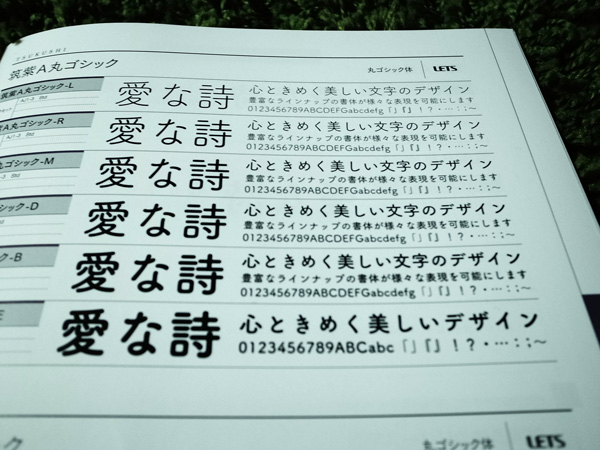 TSUKUSHI
筑紫A丸ゴシック
丸ゴシック体 LETS
筑紫A丸ゴシック-L
愛な詩
心ときめく美しい文字のデザイン
豊富なラインナップの書体が様々な表現を可能にします
0123456789ABCDEFGabcdefg「」『』！？・…：；〜
紫A丸ゴシック-R
愛な詩
心ときめく美しい文字のデザイン
豊富なラインナップの書体が様々な表現を可能にします
0123456789ABCDEFGabcdefg「」『』！？・…：；〜
丸ゴシック-M
愛な詩
心ときめく美しい文字のデザイン
豊富なラインナップの書体が様々な表現を可能にします
0123456789ABCDEFGabcdefg「」『』！？・…：；〜
シック-D
愛な詩
心ときめく美しい文字のデザイン
豊富なラインナップの書体が様々な表現を可能にします
0123456789ABCDEFGabcdefg「」『』！？・…：；〜
ック-B
愛な詩
心ときめく美しい文字のデザイン
豊富なラインナップの書体が様々な表現を可能にします
0123456789ABCDEFGabcdefg「」『』！？・…：；〜
E
愛な詩
心ときめく美しいデザイン
0123456789ABCabc「」『』！？・…：；〜
ク
丸ゴシック体 LETS